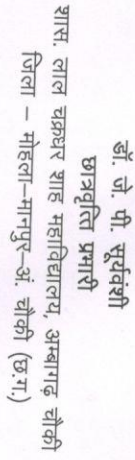 डॉ. जे. पी. सूर्यवंशी
छात्रवृत्ति प्रभारी
शास. लाल चक्रधर शाह महाविद्यालय, अम्बागढ़ चौकी
जिला – मोहला–मानपुर–अं. चौकी (छ.ग.)